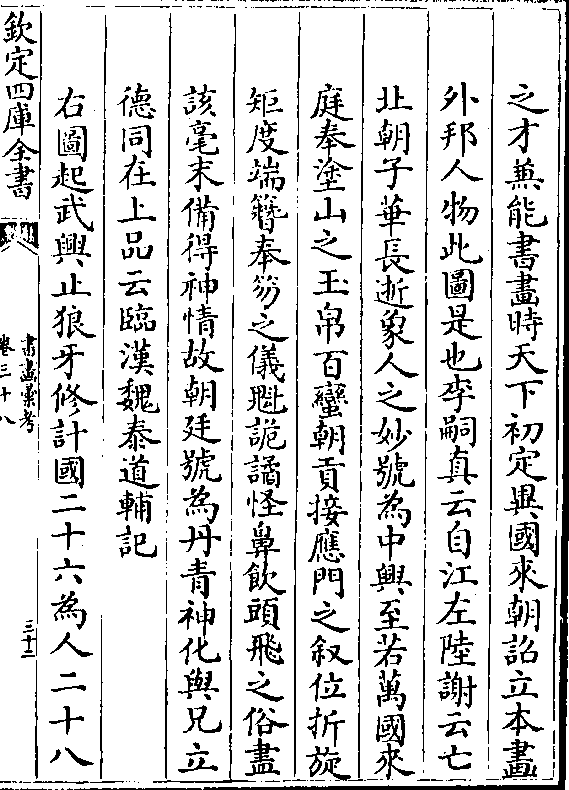 之才兼能書畫時天下初定異國來朝詔立本畫
外邦人物此圖是也李嗣真云自江左陸謝云七
北朝子華長逝象人之妙號為中興至若萬國來
庭奉塗山之玉帛百蠻朝貢接應門之叙位折旋
矩度端簪奉笏之儀魁詭譎怪鼻飲頭飛之俗盡
該毫末備得神情故朝廷號為丹青神化與兄立
德同在上品云臨漢魏泰道輔記
右圖起武興止狼牙修計國二十六為人二十八
欽定四庫全書
書畫彚考
卷三十八
三十二